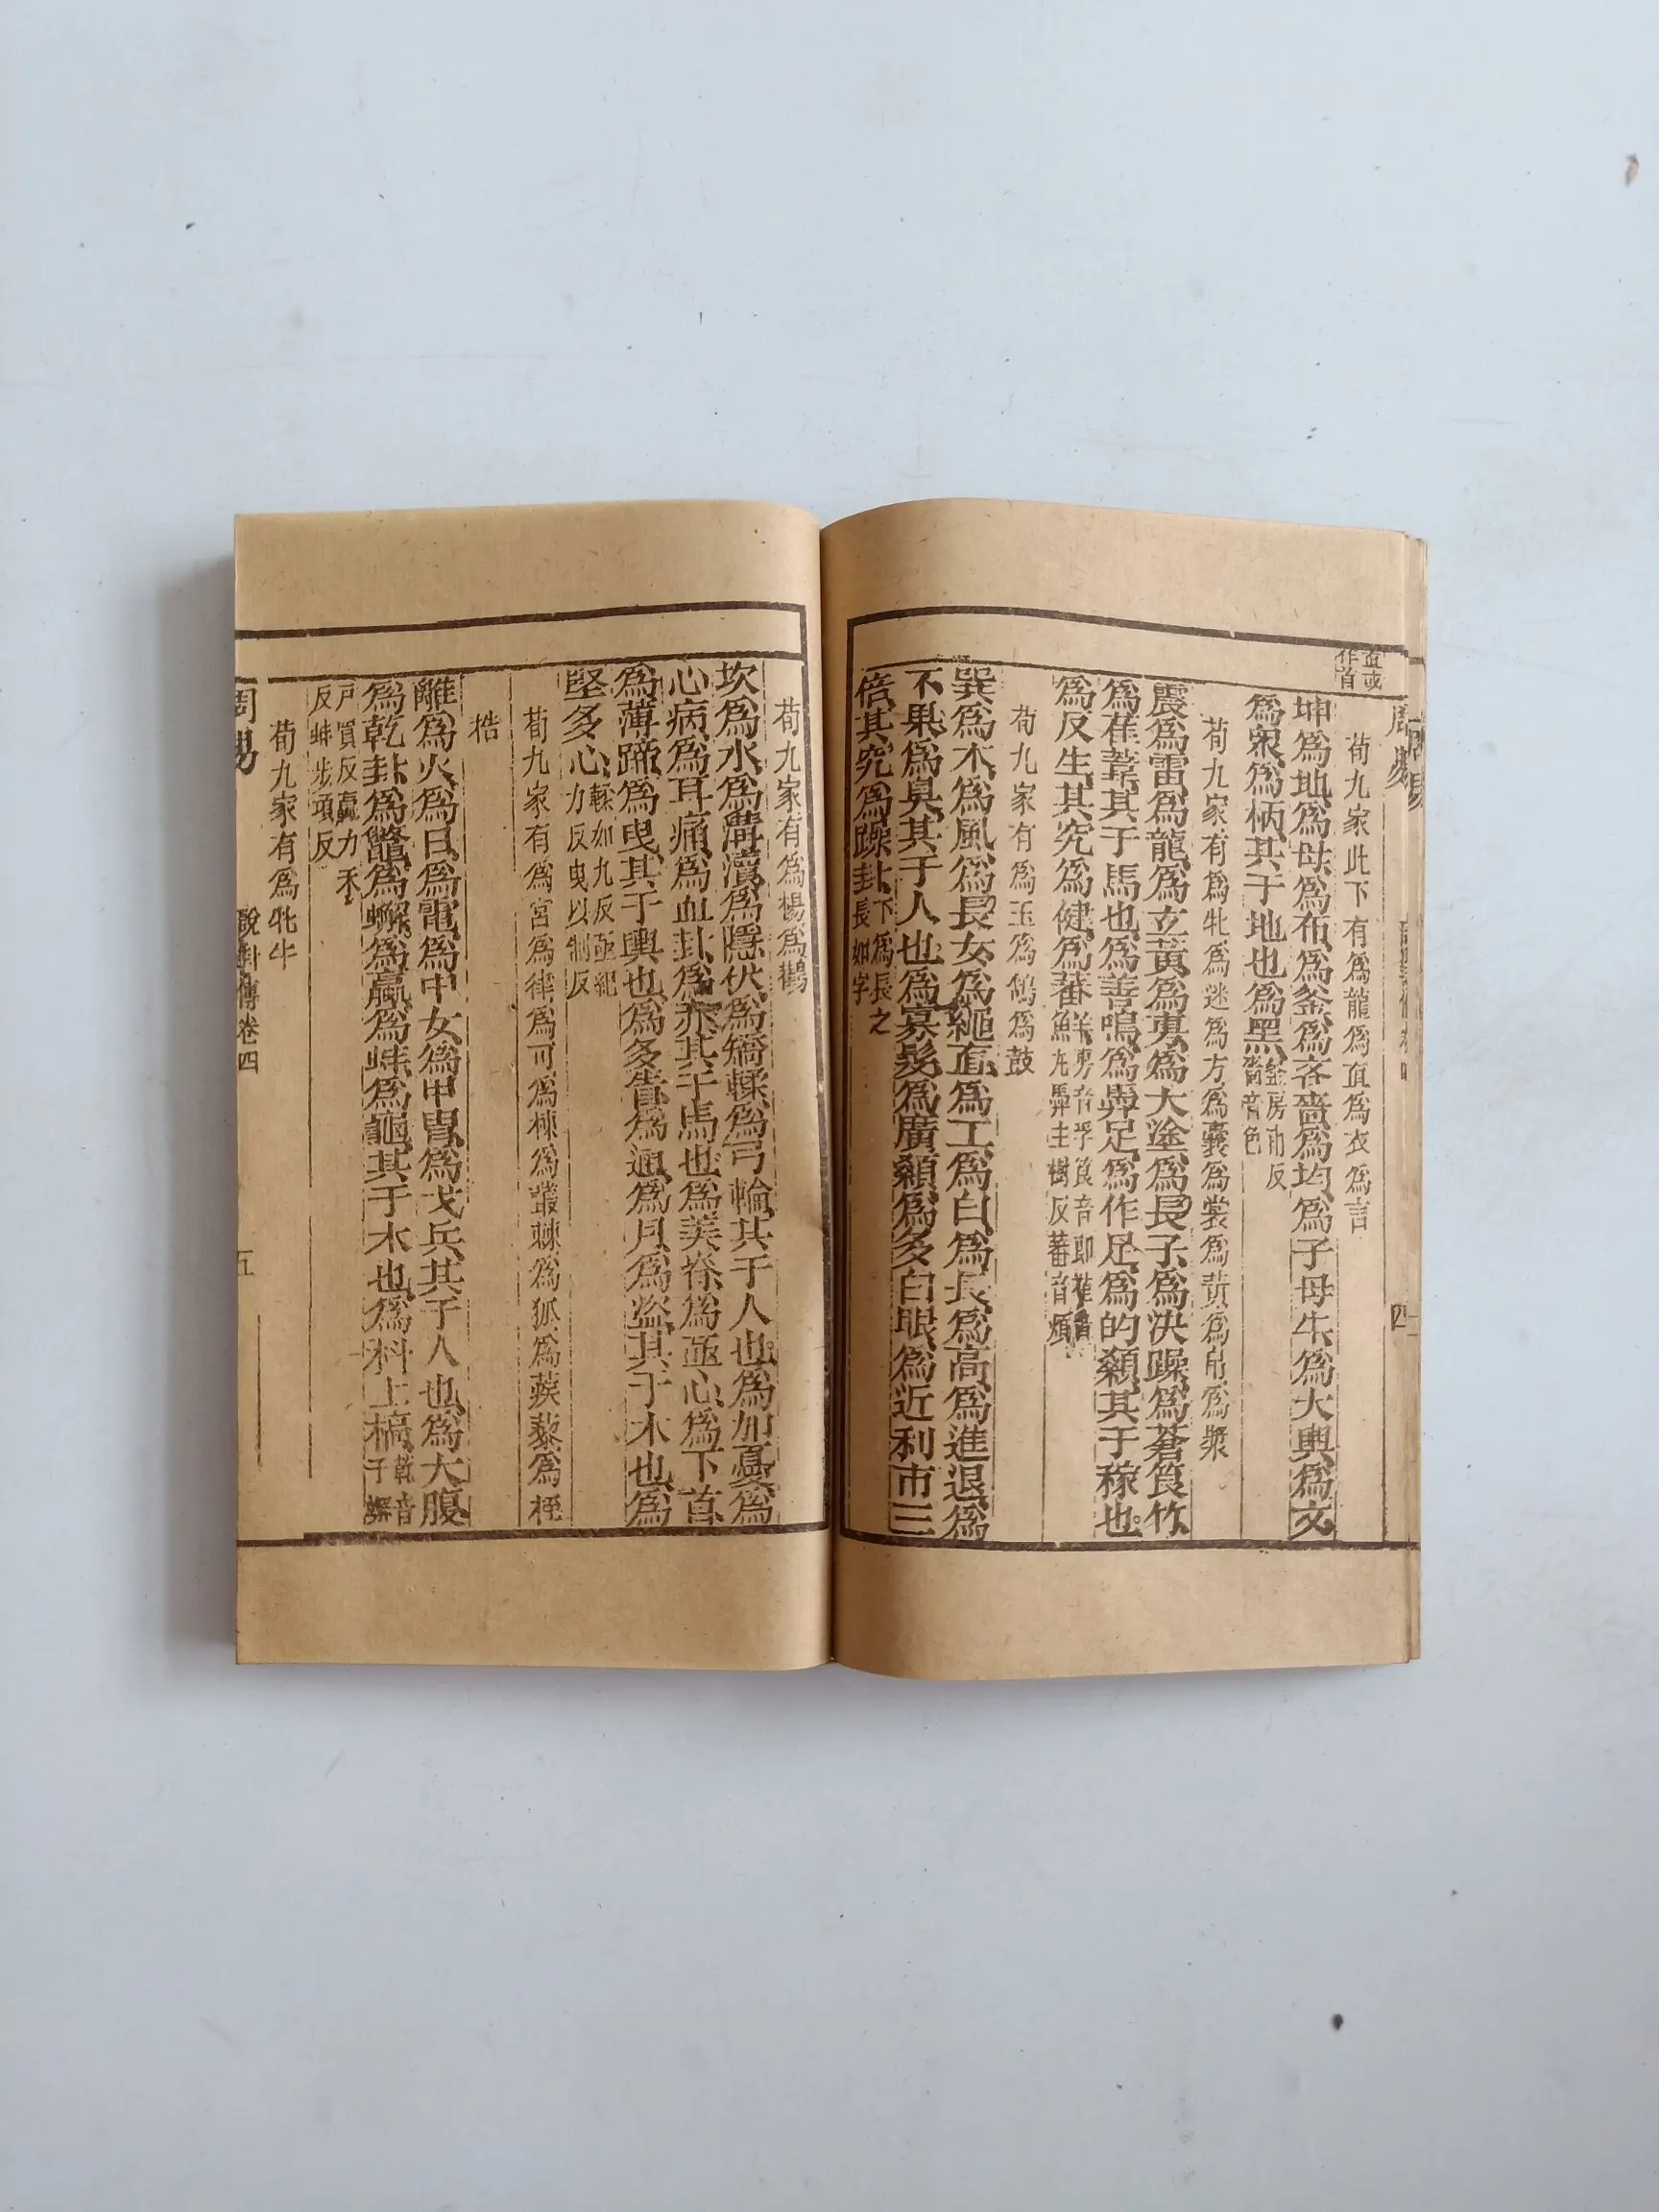 直或
作首
荀九家此下有爲龍爲直爲衣爲言
坤爲地爲母爲布爲釜爲吝嗇爲均爲子母牛爲大輿爲文
爲衆爲柄其于地也爲黑
釜房甫反
嗇音色
荀九家有爲牝爲迷爲方爲囊爲裳爲黃爲帛爲漿
震爲雷爲龍爲玄黃爲旉爲大塗爲長子爲決躁爲蒼筤竹
爲萑葦其于馬也爲善鳴爲馵足爲作足爲的顙其于稼也
爲反生其究爲健爲蕃鮮
旉音孚筤音郎萑音
丸馵主樹反蕃音煩
荀九家有爲玉爲鵠爲鼓
巽爲木爲風爲長女爲繩直爲工爲白爲長爲高爲進退爲
不果爲臭其于人也爲寡髮爲廣顙爲多白眼爲近利市三
倍其究爲躁卦
下爲長之
長如字
荀九家有爲楊爲鸛
坎爲水爲溝瀆爲隱伏爲矯輮爲弓輪其于人也爲加憂爲
心病爲耳痛爲血卦爲赤其于馬也爲美脊爲亟心爲下首
爲薄蹄爲曳其于輿也爲多眚爲通爲月爲盜其于木也爲
堅多心
輮如九反亟紀
力反曳以制反
荀九家有爲宮爲律爲可爲棟爲叢棘爲狐爲蒺藜爲桎
梏
離爲火爲日爲電爲中女爲甲冑爲戈兵其于人也爲大腹
爲乾卦爲鼈爲蟹爲蠃爲蚌爲龜其于木也爲科上槁
乾音
干蟹
戸買反蠃力禾
反蚌步項反
荀九家有爲牝牛
周易
說卦傳卷四
五